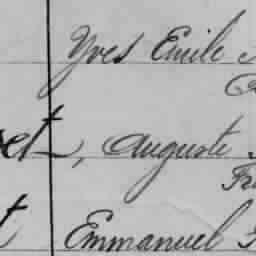 Yves Emile
et, Auguste
Fr
t Emmanuel